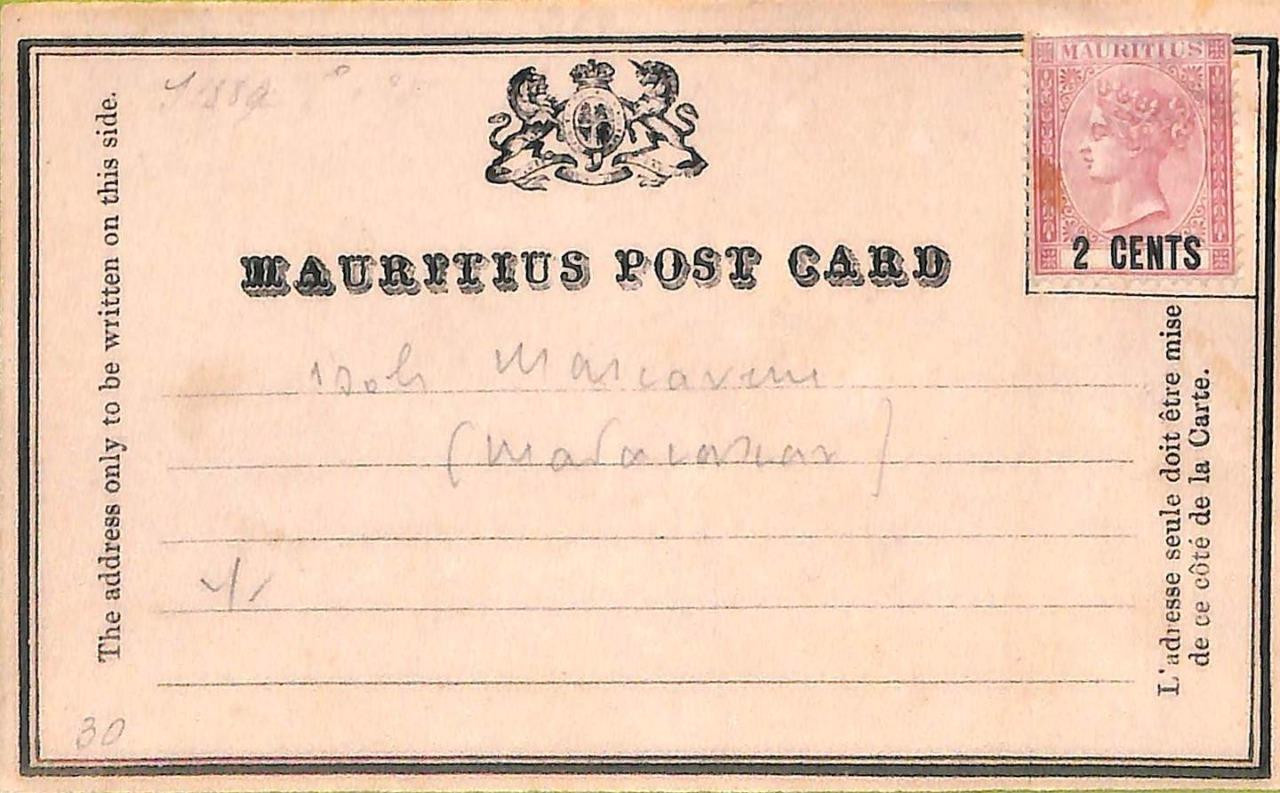 MAURITIUS
2 CENTS
MAURITIUS POST CARD
The address only to be written on this side.
Isole Mascarene
(Madacascar)
L'adresse seule doit être mise
de ce côté de la Carte.
30